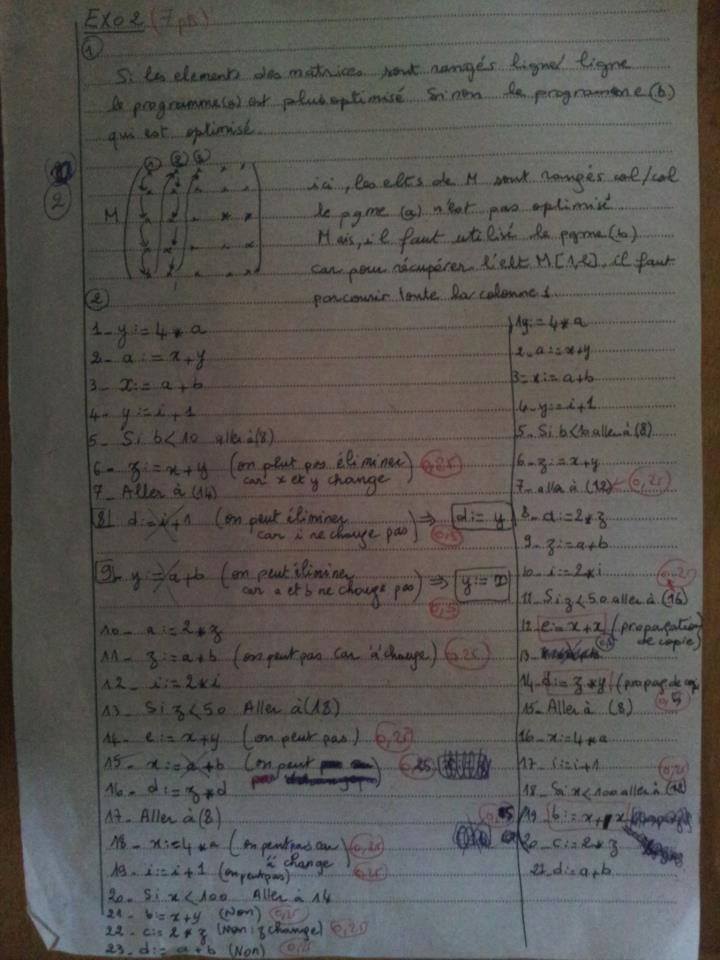 EXO2 (7pts)
1
Si les elements des matrices sont rangés ligne/ligne
le programme(a) est plus optimisé Si non le programme (b)
qui est optimisé.
1 2 3
2
M
ici, les elts de M sont rangés col/col
le pgme (a) n'est pas optimisé
Mais, il faut utilisé le pgme(b)
car pour récupérer l'elt M[1,2] il faut
parcourir toute la colonne 1
2
1- y:=4*a
2- a:=x+y
3- x:=a+b
4- y:=i+1
5- Si b<10 aller à(8)
6- z:=x+y (on peut pas éliminer
car x et y change) 0,25
7- Aller à (14)
8 d:=i+1 (on peut éliminer
car i ne change pas) ⇒ d:=y
0,5
9- y:=a+b (on peut éliminer
car a et b ne change pas) ⇒ y:=x
0,5
10- a:=2*z
11- z:=a+b (on peut pas car "a" change) 0,25
12- i:=2*i
13- Si z<50 Aller à(18)
14- e:=x+y (on peut pas) 0,25
15- x:=a+b (on peut
16- d:=z*d
17- Aller à(8)
18- x:=4*a (on peut pas car
"a" change) 0,25
19- i:=i+1 (on peut pas) 0,25
20- Si x<100 Aller à 14
21- b:=x+y (Non) 0,25
22- c:=2*z (Non: z change) 0,25
23- d:=a+b (Non) 0,25
1y:=4*a
2- a:=x+y
3- x:=a+b
4- y:=i+1
5- Si b<10 aller à (8)
6- z:=x+y
7- aller à (12) 0,25
8- d:=2*z
9- z:=a+b
10- i:=2*i
0,25
11- Si z<50 aller à (16)
12 e:=x+x (propagation
de copie)
13-
14- d:=z*y (propag de
0,5
15- Aller à (8)
16- x:=4*a
17- i:=i+1
0,25
18- Si x<100 aller à
19- b:=x+x
20- c:=2*z
21- d:=a+b